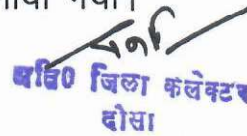 गया।
अति० जिला कलेक्टर
दौसा